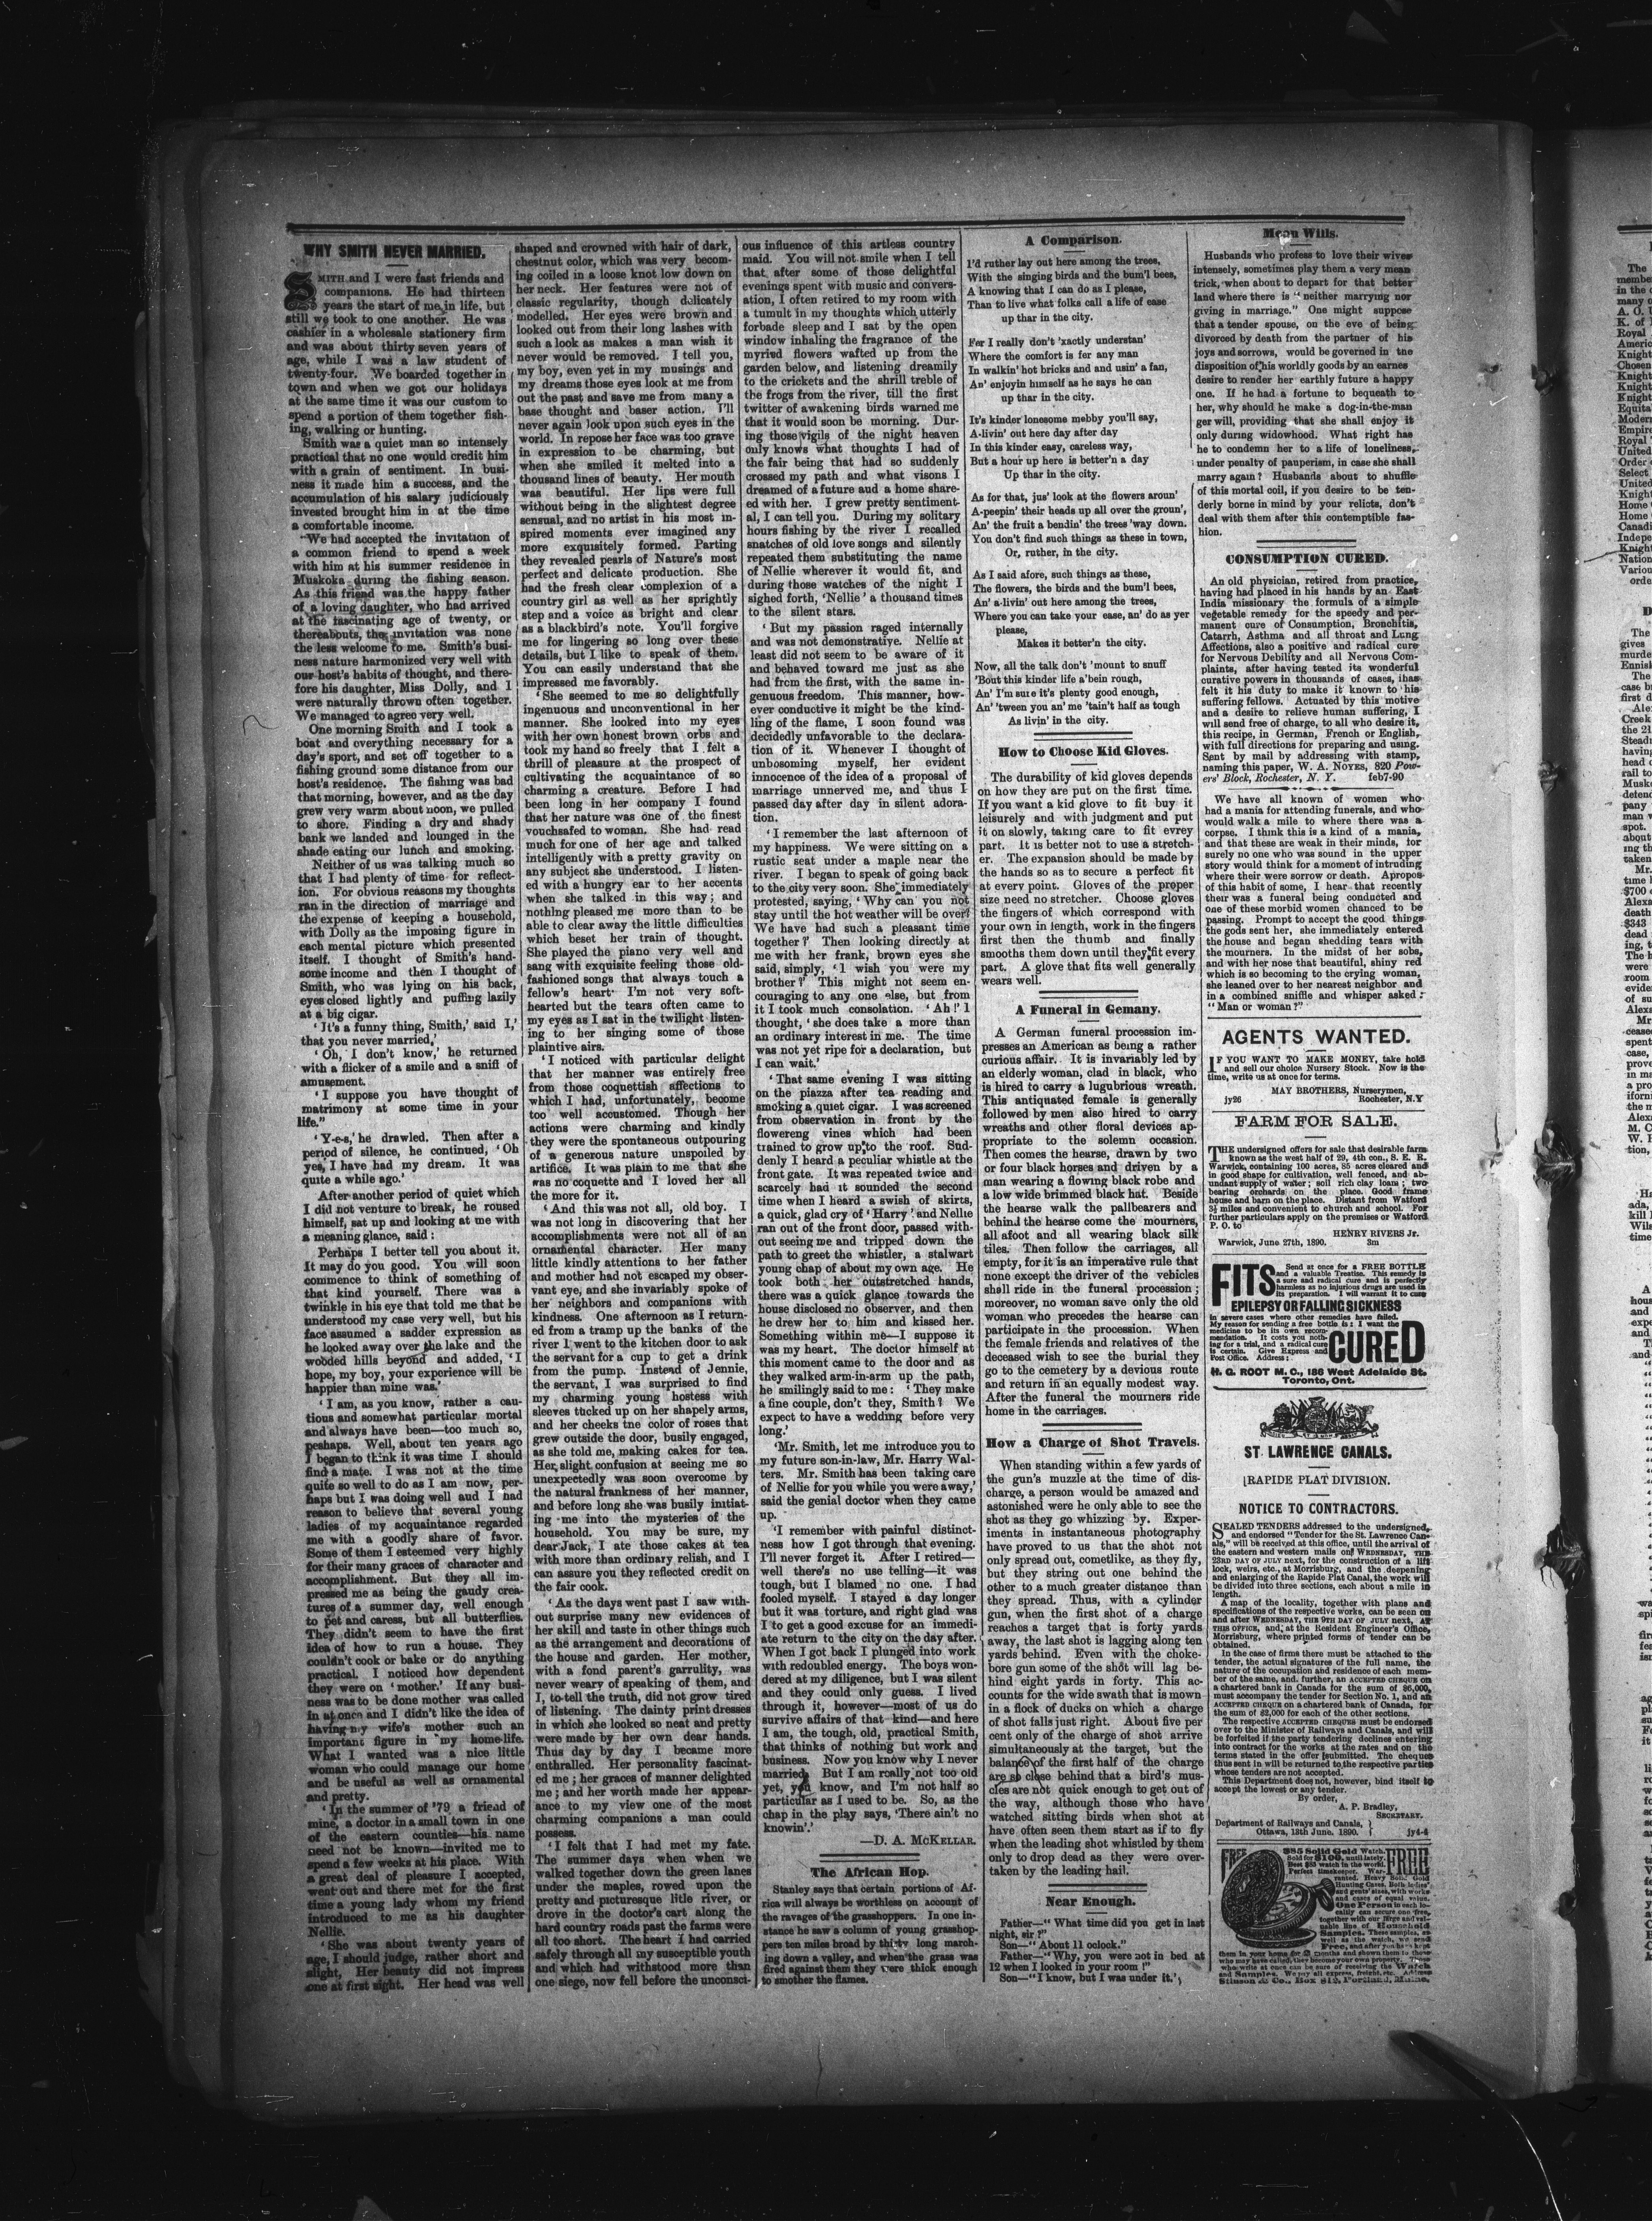 WHY SMITH NEVER MARRIED.
SMITH and I were fast friends and
companions. He had thirteen
years the start of me in life, but
still we took to one another. He was
cashier in a wholesale stationery firm
and was about thirty seven years of
age, while I was a law student of
twenty-four. We boarded together in
town and when we got our holidays
at the same time it was our custom to
spend a portion of them together fish-
ing, walking or hunting.
Smith was a quiet man so intensely
practical that no one would credit him
with a grain of sentiment. In busi-
ness it made him a success, and the
accumulation of his salary judiciously
invested brought him in at the time
a comfortable income.
"We had accepted the invitation of
a common friend to spend a week
with him at his summer residence in
Muskoka during the fishing season.
As this friend was the happy father
of a loving daughter, who had arrived
at the fascinating age of twenty, or
thereabouts, the invitation was none
the less welcome to me. Smith's busi-
ness nature harmonized very well with
our host's habits of thought, and there-
fore his daughter, Miss Dolly, and I
were naturally thrown often together.
We managed to agree very well.
One morning Smith and I took a
boat and everything necessary for a
day's sport, and set off together to a
fishing ground some distance from our
host's residence. The fishing was bad
that morning, however, and as the day
grew very warm about noon, we pulled
to shore. Finding a dry and shady
bank we landed and lounged in the
shade eating our lunch and smoking.
Neither of us was talking much so
that I had plenty of time for reflect-
ion. For obvious reasons my thoughts
ran in the direction of marriage and
the expense of keeping a household,
with Dolly as the imposing figure in
each mental picture which presented
itself. I thought of Smith's hand-
some income and then I thought of
Smith, who was lying on his back,
eyes closed lightly and puffing lazily
at a big cigar.
'It's a funny thing, Smith,' said I,'
that you never married,'
'Oh, I don't know,' he returned
with a flicker of a smile and a sniff of
amusement.
'I suppose you have thought of
matrimony at some time in your
life."
'Y-e-s,' he drawled. Then after a
period of silence, he continued, 'Oh
yes, I have had my dream. It was
quite a while ago.'
After another period of quiet which
I did not venture to break, he roused
himself, sat up and looking at me with
a meaning glance, said:
Perhaps I better tell you about it.
It may do you good. You will soon
commence to think of something of
that kind yourself. There was a
twinkle in his eye that told me that he
understood my case very well, but his
face assumed a sadder expression as
he looked away over the lake and the
wooded hills beyond and added, 'I
hope, my boy, your experience will be
happier than mine was.'
'I am, as you know, rather a cau-
tious and somewhat particular mortal
and always have been—too much so,
peshaps. Well, about ten years ago
I began to think it was time I should
find a mate. I was not at the time
quite so well to do as I am now, per-
haps but I was doing well aud I had
reason to believe that several young
ladies of my acquaintance regarded
me with a goodly share of favor.
Some of them I esteemed very highly
for their many graces of character and
accomplishment. But they all im-
pressed me as being the gaudy crea-
tures of a summer day, well enough
to pet and caress, but all butterflies.
They didn't seem to have the first
idea of how to run a house. They
couldn't cook or bake or do anything
practical. I noticed how dependent
they were on 'mother.' If any busi-
ness was to be done mother was called
in at once and I didn't like the idea of
having my wife's mother such an
important figure in my home-life.
What I wanted was a nice little
woman who could manage our home
and be useful as well as ornamental
and pretty.
'In the summer of '79 a friend of
mine, a doctor in a small town in one
of the eastern counties—his name
need not be known—invited me to
spend a few weeks at his place. With
a great deal of pleasure I accepted,
went out and there met for the first
time a young lady whom my friend
introduced to me as his daughter
Nellie.
'She was about twenty years of
age, I should judge, rather short and
slight, Her beauty did not impress
one at first sight. Her head was well
shaped and crowned with hair of dark,
chestnut color, which was very becom-
ing coiled in a loose knot low down on
her neck. Her features were not of
classic regularity, though delicately
modelled. Her eyes were brown and
looked out from their long lashes with
such a look as makes a man wish it
never would be removed. I tell you,
my boy, even yet in my musings and
my dreams those eyes look at me from
out the past and save me from many a
base thought and baser action. I'll
never again look upon such eyes in the
world. In repose her face was too grave
in expression to be charming, but
when she smiled it melted into a
thousand lines of beauty. Her mouth
was beautiful. Her lips were full
without being in the slightest degree
sensual, and no artist in his most in-
spired moments ever imagined any
more exquisitely formed. Parting
they revealed pearls of Nature's most
perfect and delicate production. She
had the fresh clear complexion of a
country girl as well as her sprightly
step and a voice as bright and clear
as a blackbird's note. You'll forgive
me for lingering so long over these
details, but I like to speak of them.
You can easily understand that she
impressed me favorably.
'She seemed to me so delightfully
ingenuous and unconventional in her
manner. She looked into my eyes
with her own honest brown orbs and
took my hand so freely that I felt a
thrill of pleasure at the prospect of
cultivating the acquaintance of so
charming a creature. Before I had
been long in her company I found
that her nature was one of the finest
vouchsafed to woman. She had read
much for one of her age and talked
intelligently with a pretty gravity on
any subject she understood. I listen-
ed with a hungry ear to her accents
when she talked in this way; and
nothing pleased me more than to be
able to clear away the little difficulties
which beset her train of thought.
She played the piano very well and
sang with exquisite feeling those old-
fashioned songs that always touch a
fellow's heart. I'm not very soft-
hearted but the tears often came to
my eyes as I sat in the twilight listen-
ing to her singing some of those
plaintive airs.
'I noticed with particular delight
that her manner was entirely free
from those coquettish affections to
which I had, unfortunately, become
too well accustomed. Though her
actions were charming and kindly
they were the spontaneous outpouring
of a generous nature unspoiled by
artifice. It was plain to me that she
was no coquette and I loved her all
the more for it.
'And this was not all, old boy. I
was not long in discovering that her
accomplishments were not all of an
ornamental character. Her many
little kindly attentions to her father
and mother had not escaped my obser-
vant eye, and she invariably spoke of
her neighbors and companions with
kindness. One afternoon as I return-
ed from a tramp up the banks of the
river I went to the kitchen door to ask
the servant for a cup to get a drink
from the pump. Instead of Jennie,
the servant, I was surprised to find
my charming young hostess with
sleeves tucked up on her shapely arms,
and her cheeks tne color of roses that
grew outside the door, busily engaged,
as she told me, making cakes for tea.
Her slight confusion at seeing me so
unexpectedly was soon overcome by
the natural frankness of her manner,
and before long she was busily initiat-
ing me into the mysteries of the
household. You may be sure, my
dear Jack, I ate those cakes at tea
with more than ordinary relish, and I
can assure you they reflected credit on
the fair cook.
'As the days went past I saw with-
out surprise many new evidences of
her skill and taste in other things such
as the arrangement and decorations of
the house and garden. Her mother,
with a fond parent's garrulity, was
never weary of speaking of them, and
I, to tell the truth, did not grow tired
of listening. The dainty print dresses
in which she looked so neat and pretty
were made by her own dear hands.
Thus day by day I became more
enthralled. Her personality fascinat-
ed me; her graces of manner delighted
me; and her worth made her appear-
ance to my view one of the most
charming companions a man could
possess.
'I felt that I had met my fate.
The summer days when when we
walked together down the green lanes
under the maples, rowed upon the
pretty and picturesque litle river, or
drove in the doctor's cart along the
hard country roads past the farms were
all too short. The heart I had carried
safely through all my susceptible youth
and which had withstood more than
one siege, now fell before the unconsci-
ous influence of this artless country
maid. You will not smile when I tell
that after some of those delightful
evenings spent with music and convers-
ation, I often retired to my room with
a tumult in my thoughts which utterly
forbade sleep and I sat by the open
window inhaling the fragrance of the
myried flowers wafted up from the
garden below, and listening dreamily
to the crickets and the shrill treble of
the frogs from the river, till the first
twitter of awakening birds warned me
that it would soon be morning. Dur-
ing those vigils of the night heaven
only knows what thoughts I had of
the fair being that had so suddenly
crossed my path and what visons I
dreamed of a future and a home share-
ed with her. I grew pretty sentiment-
al, I can tell you. During my solitary
hours fishing by the river I recalled
snatches of old love songs and silently
repeated them substituting the name
of Nellie wherever it would fit, and
during those watches of the night I
sighed forth, 'Nellie' a thousand times
to the silent stars.
'But my passion raged internally
and was not demonstrative. Nellie at
least did not seem to be aware of it
and behaved toward me just as she
had from the first, with the same in-
genuous freedom. This manner, how-
ever conductive it might be the kind-
ling of the flame, I soon found was
decidedly unfavorable to the declara-
tion of it. Whenever I thought of
unbosoming myself, her evident
innocence of the idea of a proposal of
marriage unnerved me, and thus I
passed day after day in silent adora-
tion.
'I remember the last afternoon of
my happiness. We were sitting on a
rustic seat under a maple near the
river. I began to speak of going back
to the city very soon. She immediately
protested, saying, 'Why can you not
stay until the hot weather will be over?
We have had such a pleasant time
together?' Then looking directly at
me with her frank, brown eyes she
said, simply, 'I wish you were my
brother?' This might not seem en-
couraging to any one else, but from
it I took much consolation. 'Ah!' I
thought, 'she does take a more than
an ordinary interest in me. The time
was not yet ripe for a declaration, but
I can wait.'
'That same evening I was sitting
on the piazza after tea reading and
smoking a quiet cigar. I was screened
from observation in front by the
flowereng vines which had been
trained to grow up to the roof. Sud-
denly I heard a peculiar whistle at the
front gate. It was repeated twice and
scarcely had it sounded the second
time when I heard a swish of skirts,
a quick, glad cry of 'Harry' and Nellie
ran out of the front door, passed with-
out seeing me and tripped down the
path to greet the whistler, a stalwart
young chap of about my own age. He
took both her outstretched hands,
there was a quick glance towards the
house disclosed no observer, and then
he drew her to him and kissed her.
Something within me—I suppose it
was my heart. The doctor himself at
this moment came to the door and as
they walked arm-in-arm up the path,
he smilingly said to me: 'They make
a fine couple, don't they, Smith? We
expect to have a wedding before very
long.'
'Mr. Smith, let me introduce you to
my future son-in-law, Mr. Harry Wal-
ters. Mr. Smith has been taking care
of Nellie for you while you were away,'
said the genial doctor when they came
up.
'I remember with painful distinct-
ness how I got through that evening.
I'll never forget it. After I retired—
well there's no use telling—it was
tough, but I blamed no one. I had
fooled myself. I stayed a day longer
but it was torture, and right glad was
I to get a good excuse for an immedi-
ate return to the city on the day after.
When I got back I plunged into work
with redoubled energy. The boys won-
dered at my diligence, but I was silent
and they could only guess. I lived
through it, however—most of us do
survive affairs of that kind—and here
I am, the tough, old, practical Smith,
that thinks of nothing but work and
business. Now you know why I never
married. But I am really not too old
yet, you know, and I'm not half so
particular as I used to be. So, as the
chap in the play says, 'There ain't no
knowin'.'
—D. A. MCKELLAR.
The African Hop.
Stanley says that certain portions of Af-
rica will always be worthless on account of
the ravages of the grasshoppers. In one in-
stance he saw a column of young grasshop-
pers ten miles broad by thirty long march-
ing down a valley, and when the grass was
fired against them they were thick enough
to smother the flames.
A Comparison.
I'd ruther lay out here among the trees,
With the singing birds and the bum'l bees,
A knowing that I can do as I please,
Than to live what folks call a life of ease
up thar in the city.
Fer I really don't 'xactly understan'
Where the comfort is fer any man
In walkin' hot bricks and and usin' a fan,
An' enjoyin himself as he says he can
up thar in the city.
It's kinder lonesome mebby you'll say,
A-livin' out here day after day
In this kinder easy, careless way,
But a hour up here is better'n a day
Up thar in the city.
As for that, jus' look at the flowers aroun'
A-peepin' their heads up all over the groun',
An' the fruit a bendin' the trees 'way down.
You don't find such things as these in town,
Or, ruther, in the city.
As I said afore, such things as these,
The flowers, the birds and the bum'l bees,
An' a-livin' out here among the trees,
Where you can take your ease, an' do as yer
please,
Makes it better'n the city.
Now, all the talk don't 'mount to snuff
'Bout this kinder life a'bein rough,
An' I'm sure it's plenty good enough,
An' 'tween you an' me 'tain't half as tough
As livin' in the city.
How to Choose Kid Gloves.
The durability of kid gloves depends
on how they are put on the first time.
If you want a kid glove to fit buy it
leisurely and with judgment and put
it on slowly, taking care to fit evrey
part. It is better not to use a stretch-
er. The expansion should be made by
the hands so as to secure a perfect fit
at every point. Gloves of the proper
size need no stretcher. Choose gloves
the fingers of which correspond with
your own in length, work in the fingers
first then the thumb and finally
smooths them down until they fit every
part. A glove that fits well generally
wears well.
A Funeral in Gemany.
A German funeral procession im-
presses an American as being a rather
curious affair. It is invariably led by
an elderly woman, clad in black, who
is hired to carry a lugubrious wreath.
This antiquated female is generally
followed by men also hired to carry
wreaths and other floral devices ap-
propriate to the solemn occasion.
Then comes the hearse, drawn by two
or four black horses and driven by a
man wearing a flowing black robe and
a low wide brimmed black hat. Beside
the hearse walk the pallbearers and
behind the hearse come the mourners,
all afoot and all wearing black silk
tiles. Then follow the carriages, all
empty, for it is an imperative rule that
none except the driver of the vehicles
shall ride in the funeral procession;
moreover, no woman save only the old
woman who precedes the hearse can
participate in the procession. When
the female friends and relatives of the
deceased wish to see the burial they
go to the cemetery by a devious route
and return in an equally modest way.
After the funeral the mourners ride
home in the carriages.
How a Charge of Shot Travels.
When standing within a few yards of
the gun's muzzle at the time of dis-
charge, a person would be amazed and
astonished were he only able to see the
shot as they go whizzing by. Exper-
iments in instantaneous photography
have proved to us that the shot not
only spread out, cometlike, as they fly,
but they string out one behind the
other to a much greater distance than
they spread. Thus, with a cylinder
gun, when the first shot of a charge
reaches a target that is forty yards
away, the last shot is lagging along ten
yards behind. Even with the choke-
bore gun some of the shot will lag be-
hind eight yards in forty. This ac-
counts for the wide swath that is mown
in a flock of ducks on which a charge
of shot falls just right. About five per
cent only of the charge of shot arrive
simultaneously at the target, but the
balance of the first half of the charge
are so close behind that a bird's mus-
cles are not quick enough to get out of
the way, although those who have
watched sitting birds when shot at
have often seen them start as if to fly
when the leading shot whistled by them
only to drop dead as they were over-
taken by the leading hail.
Near Enough.
Father—"What time did you get in last
night, sir?"
Son—"About 11 oclock."
Father—"Why, you were not in bed at
12 when I looked in your room!"
Son—"I know, but I was under it.'
Mean Wills.
Husbands who profess to love their wives
intensely, sometimes play them a very mean
trick, when about to depart for that better
land where there is "neither marrying nor
giving in marriage." One might suppose
that a tender spouse, on the eve of being
divorced by death from the partner of his
joys and sorrows, would be governed in tne
disposition of his worldly goods by an earnes
desire to render her earthly future a happy
one. If he had a fortune to bequeath to
her, why should he make a dog-in-the-man
ger will, providing that she shall enjoy it
only during widowhood. What right has
he to condemn her to a life of loneliness,
under penalty of pauperism, in case she shall
marry again? Husbands about to shuffle
of this mortal coil, if you desire to be ten-
derly borne in mind by your relicts, don't
deal with them after this contemptible fas-
hion.
CONSUMPTION CURED.
An old physician, retired from practice,
having had placed in his hands by an East
India missionary the formula of a simple
vegetable remedy for the speedy and per-
manent cure of Consumption, Bronchitis,
Catarrh, Asthma and all throat and Lung
Affections, also a positive and radical cure
for Nervous Debility and all Nervous Com-
plaints, after having tested its wonderful
curative powers in thousands of cases, ihas
felt it his duty to make it known to his
suffering fellows. Actuated by this motive
and a desire to relieve human suffering, I
will send free of charge, to all who desire it,
this recipe, in German, French or English,
with full directions for preparing and using.
Sent by mail by addressing with stamp,
naming this paper, W. A. NOYES, 820 Pow-
ers' Block, Rochester, N. Y. feb7-90
We have all known of women who
had a mania for attending funerals, and who
would walk a mile to where there was a
corpse. I think this is a kind of a mania,
and that these are weak in their minds, for
surely no one who was sound in the upper
story would think for a moment of intruding
where their were sorrow or death. Apropos
of this habit of some, I hear that recently
their was a funeral being conducted and
one of these morbid women chanced to be
passing. Prompt to accept the good things
the gods sent her, she immediately entered
the house and began shedding tears with
the mourners. In the midst of her sobs,
and with her nose that beautiful, shiny red
which is so becoming to the crying woman,
she leaned over to her nearest neighbor and
in a combined sniffle and whisper asked:
"Man or woman?"
AGENTS WANTED.
IF YOU WANT TO MAKE MONEY, take hold
and sell our choice Nursery Stock. Now is the
time, write us at once for terms.
MAY BROTHERS, Nurserymen,
jy26 Rochester, N.Y
FARM FOR SALE.
THE undersigned offers for sale that desirable farm
known as the west half of 29, 4th con., S. E. R.
Warwick, containing 100 acres, 85 acres cleared and
in good shape for cultivation, well fenced, and ab-
undant supply of water; soil rich clay loam; two
bearing orchards on the place. Good frame
house and barn on the place. Distant from Watford
3½ miles and convenient to church and school. For
further particulars apply on the premises or Watford
P. O. to
HENRY RIVERS Jr.
Warwick, June 27th, 1890. 3m
FITS
Send at once for a FREE BOTTLE
and a valuable Treatise. This remedy is
a sure and radical cure and is perfectly
harmless as no injurious drugs are used in
its preparation. I will warrant it to cure
EPILEPSY OR FALLING SICKNESS
in severe cases where other remedies have failed.
My reason for sending a free bottle is: I want the
medicine to be its own recom-
mendation. It costs you noth-
ing for a trial, and a radical cure
is certain. Give Express and
Post Office. Address:
CURED
H. G. ROOT M. C., 186 West Adelaide St.
Toronto, Ont.
ST. LAWRENCE CANALS.
RAPIDE PLAT DIVISION.
NOTICE TO CONTRACTORS.
SEALED TENDERS addressed to the undersigned,
and endorsed "Tender for the St. Lawrence Can-
als," will be received at this office, until the arrival of
the eastern and western mails on WEDNESDAY, THE
23RD DAY OF JULY next, for the construction of a lift
lock, weirs, etc., at Morrisburg, and the deepening
and enlarging of the Rapide Plat Canal, the work will
be divided into three sections, each about a mile in
length.
A map of the locality, together with plans and
specifications of the respective works, can be seen on
and after WEDNESDAY, THE 9TH DAY OF JULY next, AT
THIS OFFICE, and, at the Resident Engineer's Office,
Morrisburg, where printed forms of tender can be
obtained.
In the case of firms there must be attached to the
tender, the actual signatures of the full name, the
nature of the occupation and residence of each mem-
ber of the same, and, further, an ACCEPTED CHEQUE on
a chartered bank in Canada for the sum of $6,000,
must accompany the tender for Section No. 1, and an
ACCEPTED CHEQUE on a chartered bank of Canada, for
the sum of $2,000 for each of the other sections.
The respective ACCEPTED CHEQUES must be endorsed
over to the Minister of Railways and Canals, and will
be forfeited if the party tendering declines entering
into contract for the works at the rates and on the
terms stated in the offer submitted. The cheques
thus sent in will be returned to the respective parties
whose tenders are not accepted.
This Department does not, however, bind itself to
accept the lowest or any tender.
By order,
A. P. Bradley,
SECRETARY.
Department of Railways and Canals,
Ottawa, 13th June. 1890. jy4-4
FREE
$85 Solid Gold Watch.
Sold for $100, until lately.
Best $85 watch in the world.
Perfect timekeeper. War-
ranted. Heavy Solid Gold
Hunting Cases. Both ladies'
and gents' sizes, with works
and cases of equal value.
FREE
One Person in each lo-
cality can secure one free,
together with our large and val-
uable line of Household
Samples. These samples, as
well as the watch, we send
Free, and after you have kept
them in your home for 2 months and shown them to those
who may have called, they become your own property. Those
who write at once can be sure of receiving the Watch
and Samples. We pay all express, freight, etc. Address
Stinson & Co., Box 812, Portland, Maine.